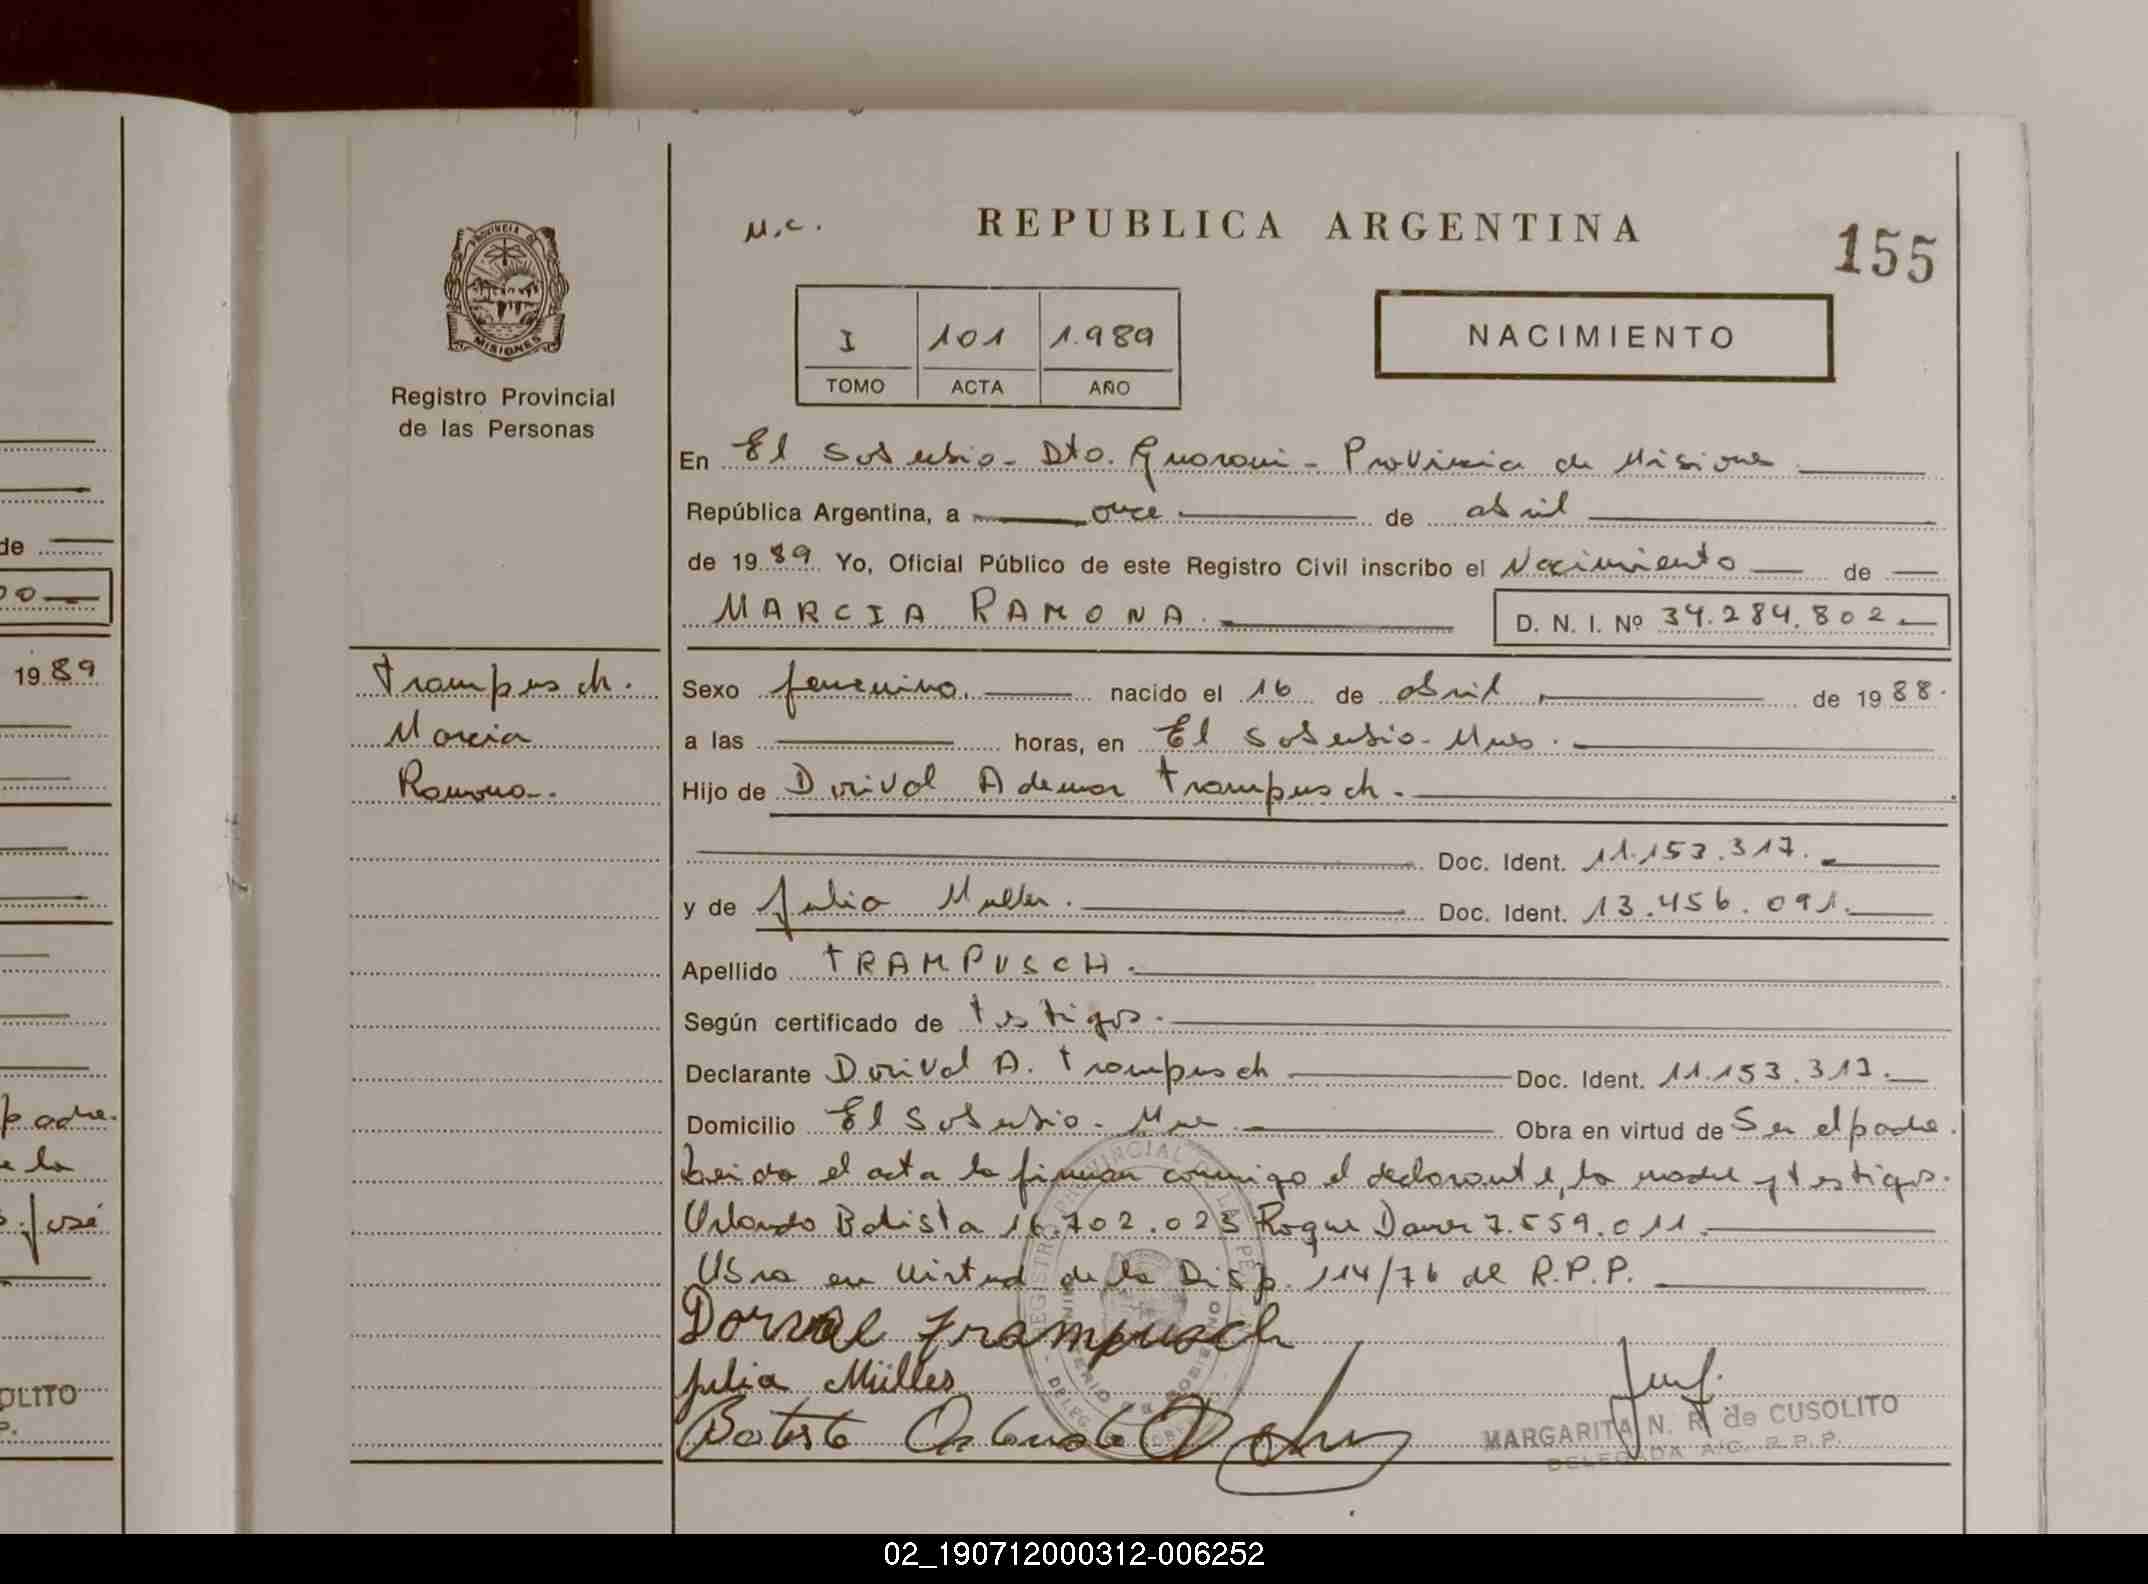 de
00
1989
padre.
e la
s. José
OLITO
P.
PROVINCIA DE
MISIONES
Registro Provincial
de las Personas
Trampusch.
Marcia
Ramona.
M.C.
REPUBLICA ARGENTINA
155
I 101 1.989
TOMO ACTA AÑO
NACIMIENTO
En El Soberbio - Dto. Guarani - Provincia de Misiones
República Argentina, a once de abril
de 1989 Yo, Oficial Público de este Registro Civil inscribo el Nacimiento de
MARCIA RAMONA. D. N. I. Nº 34.284.802
Sexo femenino. nacido el 16 de abril de 1988.
a las horas, en El Soberbio - Mnes.
Hijo de Dorival Ademar Trampusch.
Doc. Ident. 11.153.317.
y de Julia Muller. Doc. Ident. 13.456.091.
Apellido TRAMPUSCH.
Según certificado de testigos.
Declarante Dorival A. Trampusch Doc. Ident. 11.153.317.
Domicilio El Soberbio - Mnes. Obra en virtud de Ser el padre.
Leida el acta la firman conmigo el declarante, la madre y testigos.
Orlando Batista 16.702.023 Roque Daner 7.559.011.
Obra en virtud de la Disp. 114/76 del R.P.P.
Dorival Trampusch
Julia Müller
Batista Orlando
MARGARITA N. R. de CUSOLITO
DELEGADA A/C. R.P.P.
02_190712000312-006252